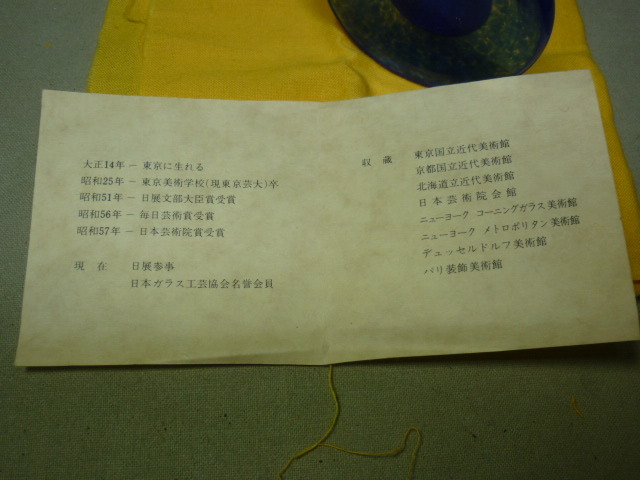 大正14年 － 東京に生れる
昭和25年 － 東京美術学校(現東京芸大)卒
昭和51年 － 日展文部大臣賞受賞
昭和56年 － 毎日芸術賞受賞
昭和57年 － 日本芸術院賞受賞
現在 日展参事
日本ガラス工芸協会名誉会員
収蔵 東京国立近代美術館
京都国立近代美術館
北海道立近代美術館
日本芸術院会館
ニューヨーク コーニングガラス美術館
ニューヨーク メトロポリタン美術館
デュッセルドルフ美術館
パリ装飾美術館